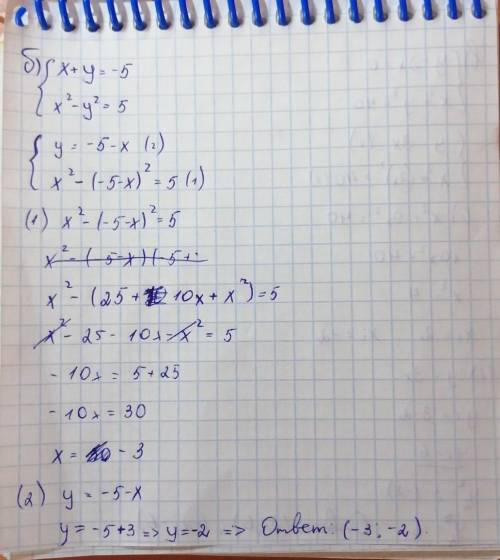 б) { x + y = -5
x² - y² = 5
{ y = -5 - x (2)
x² - (-5 - x)² = 5 (1)
(1) x² - (-5 - x)² = 5
x² - (25 + 10x + x²) = 5
x² - 25 - 10x - x² = 5
- 10x = 5 + 25
- 10x = 30
x = - 3
(2) y = -5 - x
y = -5 + 3 => y = -2 => Ответ: (-3; -2).